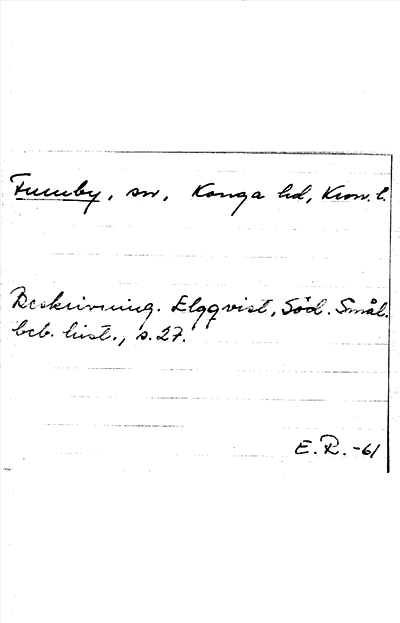 Furuby, sn, Konga hd, Kron. l.
Beskrivning. Elgqvist, Söd. Smål.
beb. hist., s. 27.
E. R. -61